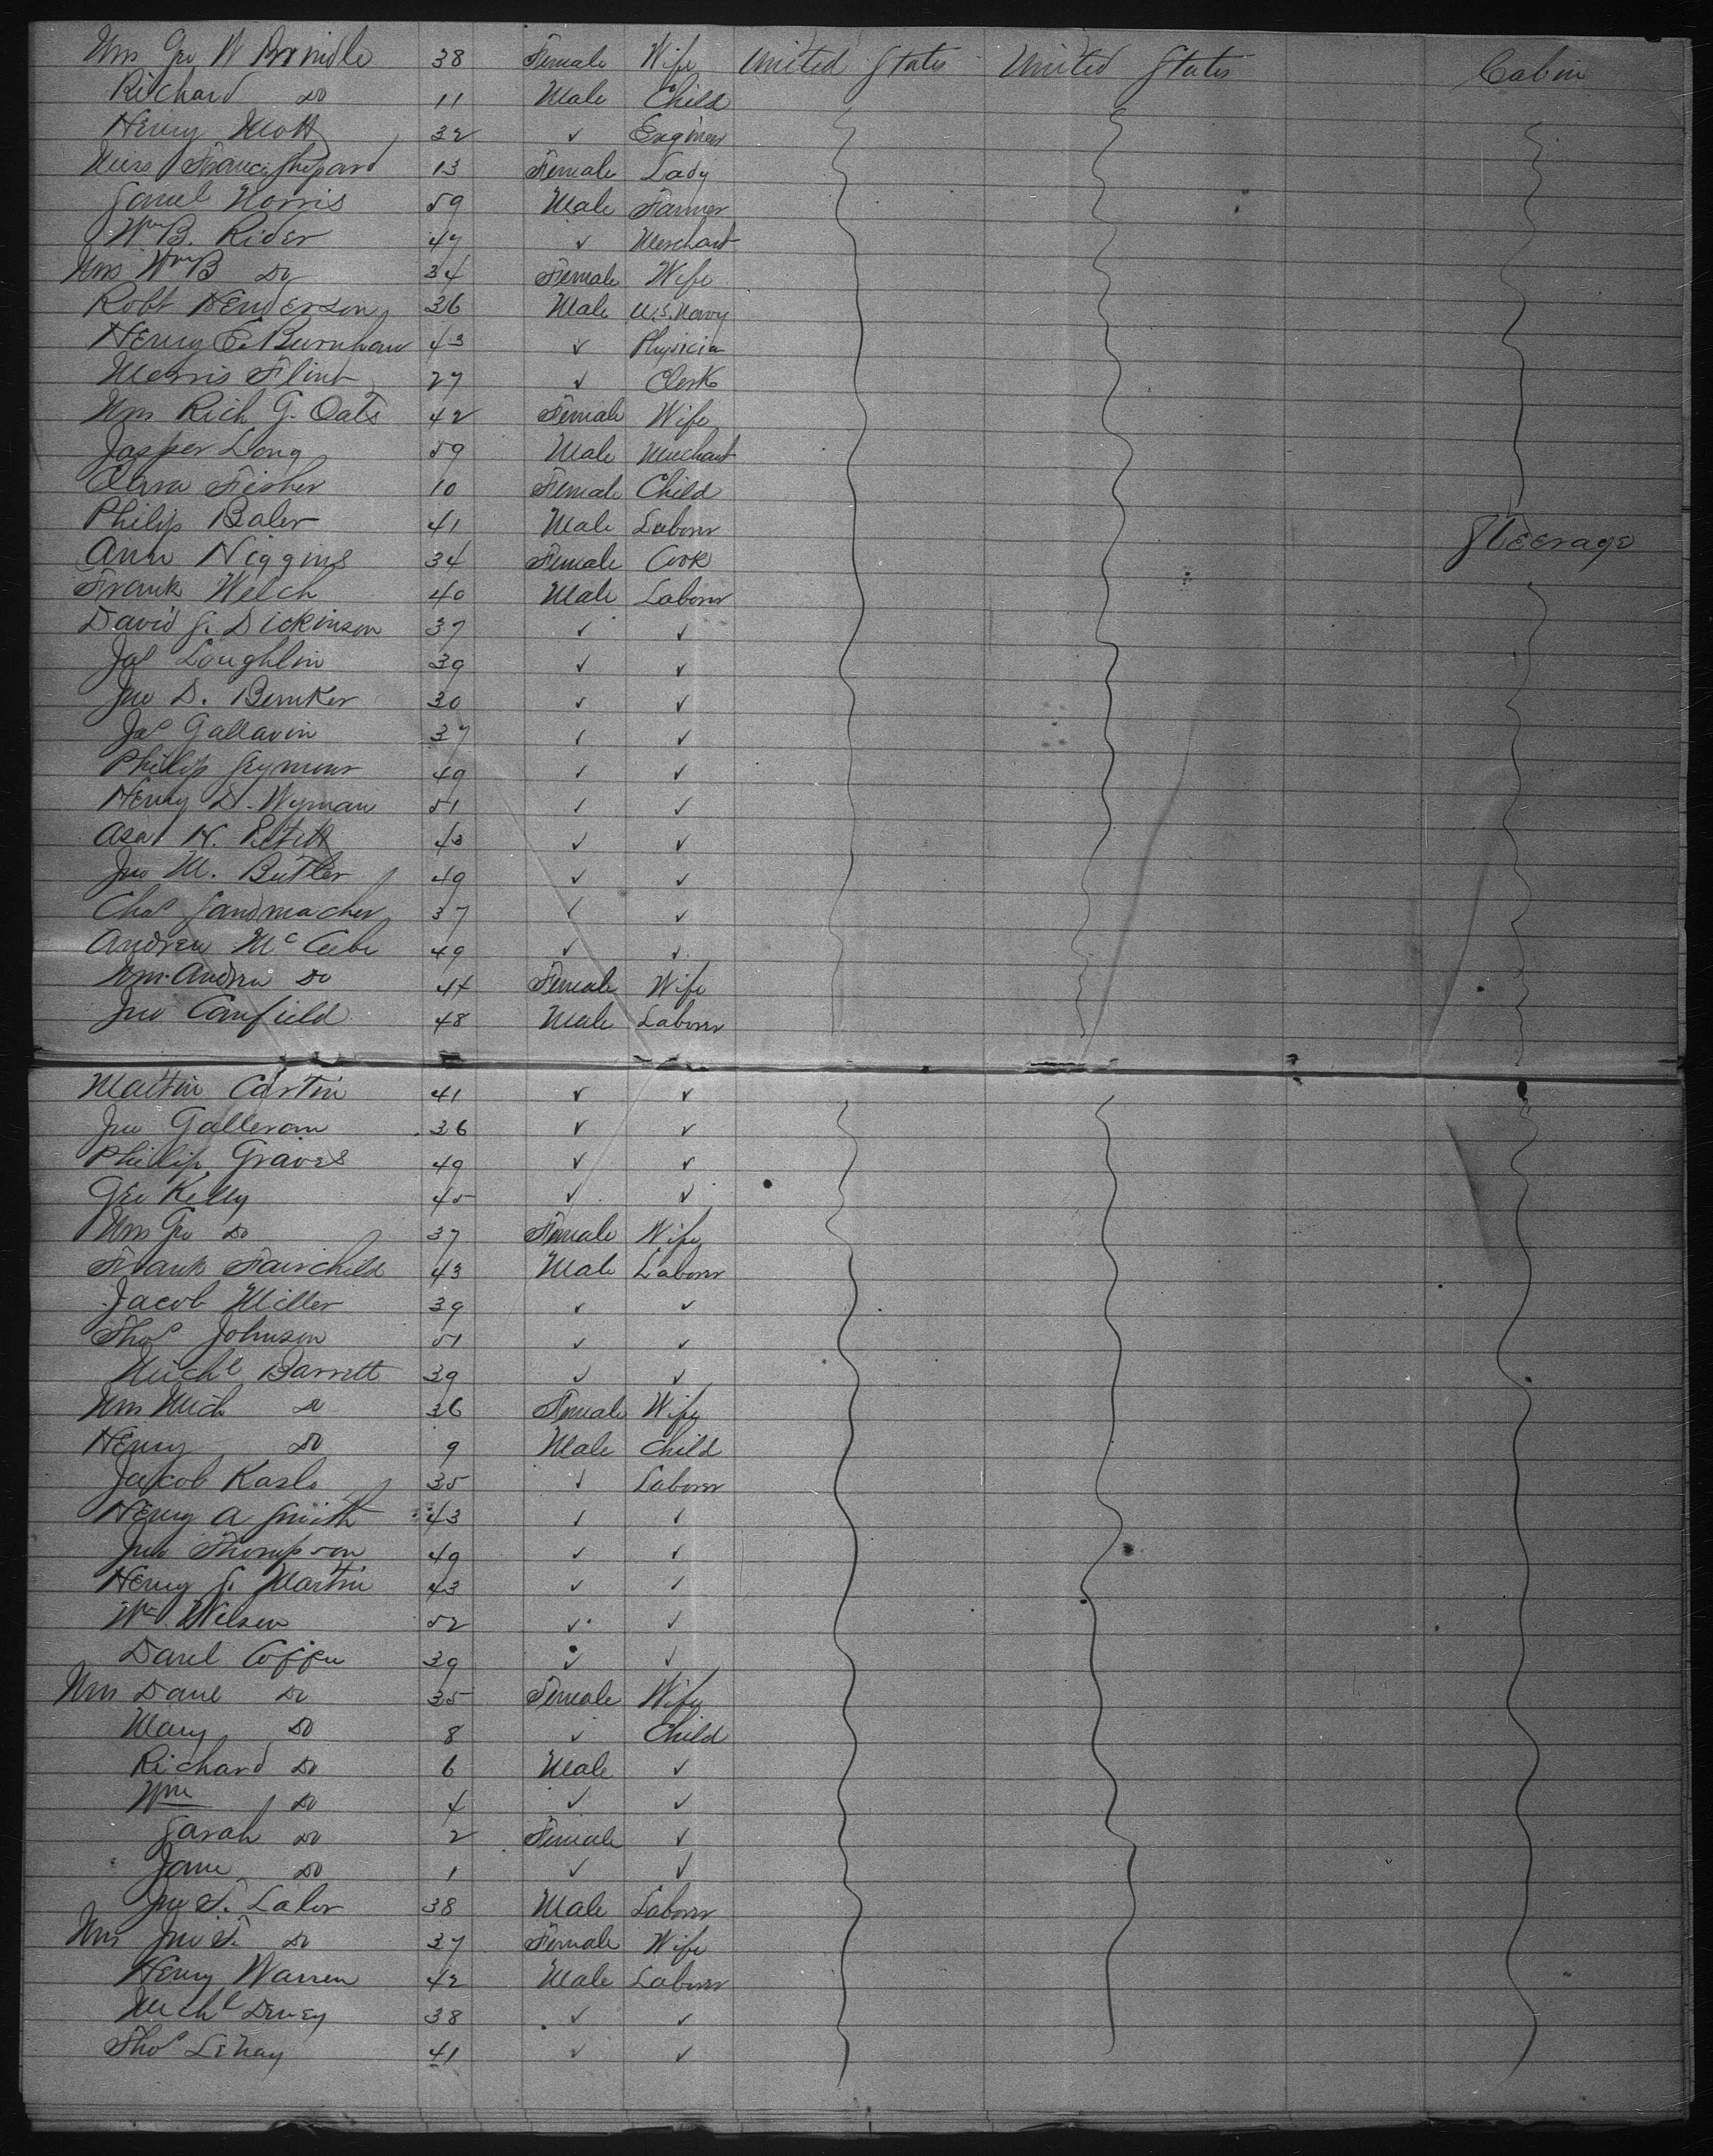 Mrs Geo W Brindle 38 Female Wife United States United States Cabin
Richard Do 11 Male Child
Henry Mott 32 ✓ Engineer
Miss Francis Shepard 13 Female Lady
Saml Norris 59 Male Farmer
Wm B. Rider 47 ✓ Merchant
Mrs Wm B Do 34 Female Wife
Robt Henderson 36 Male U.S. Navy
Henry E. Burnham 43 ✓ Physician
Morris Flint 27 ✓ Clerk
Mrs Rich G. Oats 42 Female Wife
Jasper Long 59 Male Merchant
Clara Fisher 10 Female Child
Philip Baler 41 Male Laborer Steerage
Ann Higgins 34 Female Cook
Frank Welch 40 Male Laborer
David S. Dickinson 37 ✓ ✓
Jas Loughlin 39 ✓ ✓
Jno D. Bemker 30 ✓ ✓
Jas Gallavin 37 ✓ ✓
Philip Seymour 49 ✓ ✓
Henry D. Wyman 51 ✓ ✓
Asa H. 43 ✓ ✓
Jno M. Butler 49 ✓ ✓
Chas Sandmacher 37 ✓ ✓
Andrew McCabe 49 ✓ ✓
Mrs Andrew Do 44 Female Wife
Jno Canfield 48 Male Laborer
Martin Costin 41 ✓ ✓
Jno Galleran 36 ✓ ✓
Philip Graves 49 ✓ ✓
Geo Kelly 45 ✓ ✓
Mrs Geo Do 37 Female Wife
Frank Fairchild 43 Male Laborer
Jacob Miller 39 ✓ ✓
Thos Johnson 51 ✓ ✓
Michl Barrett 39 ✓ ✓
Mrs Mich Do 36 Female Wife
Henry Do 9 Male Child
Jacob Karls 35 ✓ Laborer
Henry A Smith 43 ✓ ✓
Jno Thompson 49 ✓ ✓
Henry S. Martin 43 ✓ ✓
Wm Wilson 52 ✓ ✓
Danl Coffee 39 ✓ ✓
Mrs Danl Do 35 Female Wife
Mary Do 8 ✓ Child
Richard Do 6 Male ✓
Wm Do 4 ✓ ✓
Sarah Do 2 Female ✓
Jane Do 1 ✓ ✓
Jno T. Lalor 38 Male Laborer
Mrs Jno T. Do 37 Female Wife
Henry Warren 42 Male Laborer
Michl Dewey 38 ✓ ✓
Thos Lehay 41 ✓ ✓